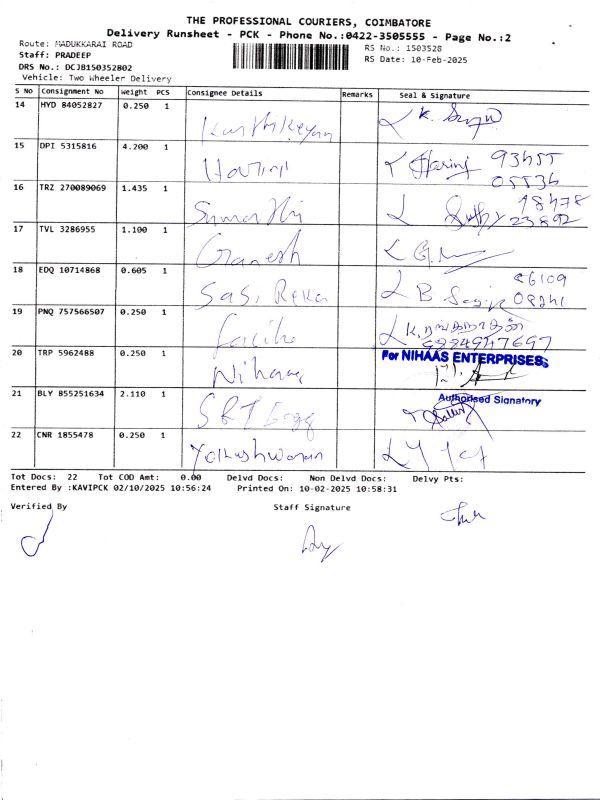 THE PROFESSIONAL COURIERS, COIMBATORE
Delivery Runsheet - PCK - Phone No.:0422-3505555 - Page No.:2
Route: MADUKKARAI ROAD
RS No.: 1503528
Staff: PRADEEP
RS Date: 10-Feb-2025
DRS No.: DCJB150352802
Vehicle: Two Wheeler Delivery
S No Consignment No Weight PCS Consignee Details Remarks Seal & Signature
14 HYD 84052827 0.250 1
Karthikeyan
15 DPI 5315816 4.200 1
Harini 93455
05536
16 TRZ 270089069 1.435 1
23892
17 TVL 3286955 1.100 1
Ganesh
18 EDQ 10714868 0.605 1
Sasi Reka B
19 PNQ 757566507 0.250 1
20 TRP 5962488 0.250 1 For NIHAAS ENTERPRISES,
Nihaas
21 BLY 855251634 2.110 1 Authorised Signatory
SRT
22 CNR 1855478 0.250 1
Tot Docs: 22 Tot COD Amt: 0.00 Delvd Docs: Non Delvd Docs: Delvy Pts:
Entered By :KAVIPCK 02/10/2025 10:56:24 Printed On: 10-02-2025 10:58:31
Verified By Staff Signature